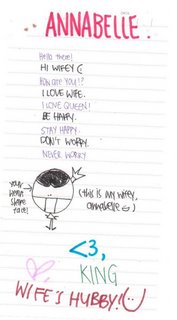 ANNABELLE.
Hello there!
HI WIFEY
HOW ARE YOU!?
I LOVE WIFE.
I LOVE QUEEN!
BE HAPPY.
STAY HAPPY.
DON'T WORRY.
NEVER WORRY
YOUR
HEART
SHAPE
FACE!
(THIS IS MY WIFEY,
ANNABELLE
<3,
KING
WIFE'S HUBBY!